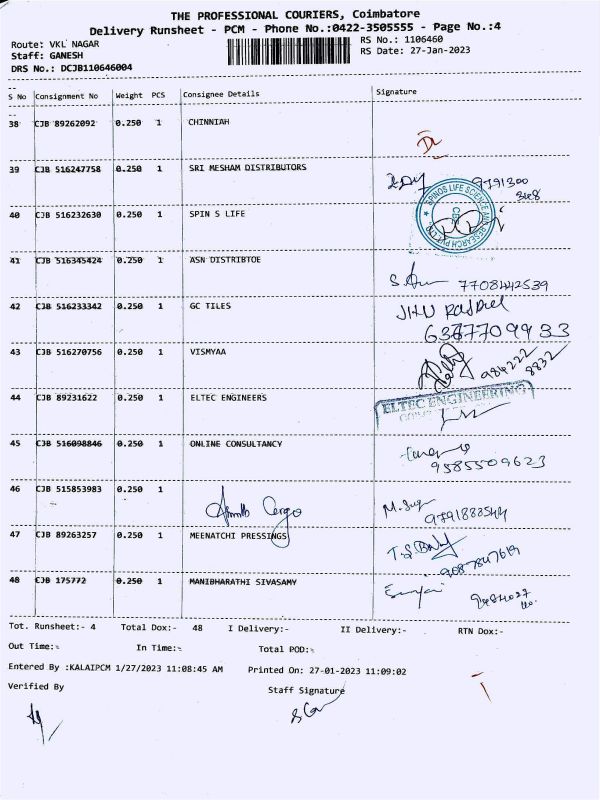 THE PROFESSIONAL COURIERS, Coimbatore
Delivery Runsheet - PCM - Phone No.:0422-3505555 - Page No.:4
Route: VKL NAGAR RS No.: 1106460
Staff: GANESH RS Date: 27-Jan-2023
DRS No.: DCJB110646004
S No Consignment No Weight PCS Consignee Details Signature
38 CJB 89262092 0.250 1 CHINNIAH
39 CJB 516247758 0.250 1 SRI MESHAM DISTRIBUTORS 9791300
348
40 CJB 516232630 0.250 1 SPIN S LIFE SPINOS LIFE SCIENCE AND RESEARCH PVT LTD
41 CJB 516345424 0.250 1 ASN DISTRIBTOE
7708442539
42 CJB 516233342 0.250 1 GC TILES
43 CJB 516270756 0.250 1 VISMYAA 984222
8832
44 CJB 89231622 0.250 1 ELTEC ENGINEERS ELTEC ENGINEERING
45 CJB 516098846 0.250 1 ONLINE CONSULTANCY
9585509623
46 CJB 515853983 0.250 1
Cargo
47 CJB 89263257 0.250 1 MEENATCHI PRESSINGS
9087847619
48 CJB 175772 0.250 1 MANIBHARATHI SIVASAMY
Tot. Runsheet:- 4 Total Dox:- 48 I Delivery:- II Delivery:- RTN Dox:-
Out Time:- In Time:- Total POD:-
Entered By :KALAIPCM 1/27/2023 11:08:45 AM Printed On: 27-01-2023 11:09:02
Verified By Staff Signature